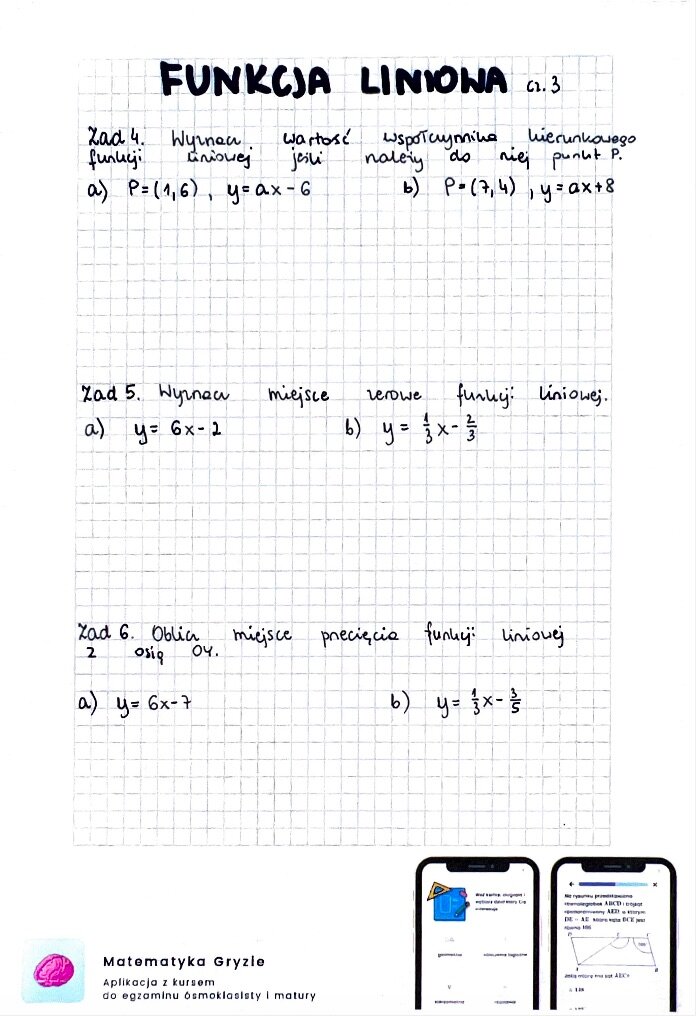 FUNKCJA LINIOWA cz. 3
Zad 4. Wyznacz wartość współczynnika kierunkowego
funkcji liniowej jeśli należy do niej punkt P.
a) P=(1,6) , y=ax-6 b) P=(7,4) , y=ax+8
Zad 5. Wyznacz miejsce zerowe funkcji liniowej.
a) y= 6x-2 b) y= 1/3 x- 2/3
Zad 6. Oblicz miejsce przecięcia funkcji liniowej
z osią OY.
a) y= 6x-7 b) y= 1/3 x- 3/5
Matematyka Gryzie
Aplikacja z kursem
do egzaminu ósmoklasisty i matury
Na rysunku przedstawiono
równoległobok ABCD i trójkąt
geometria